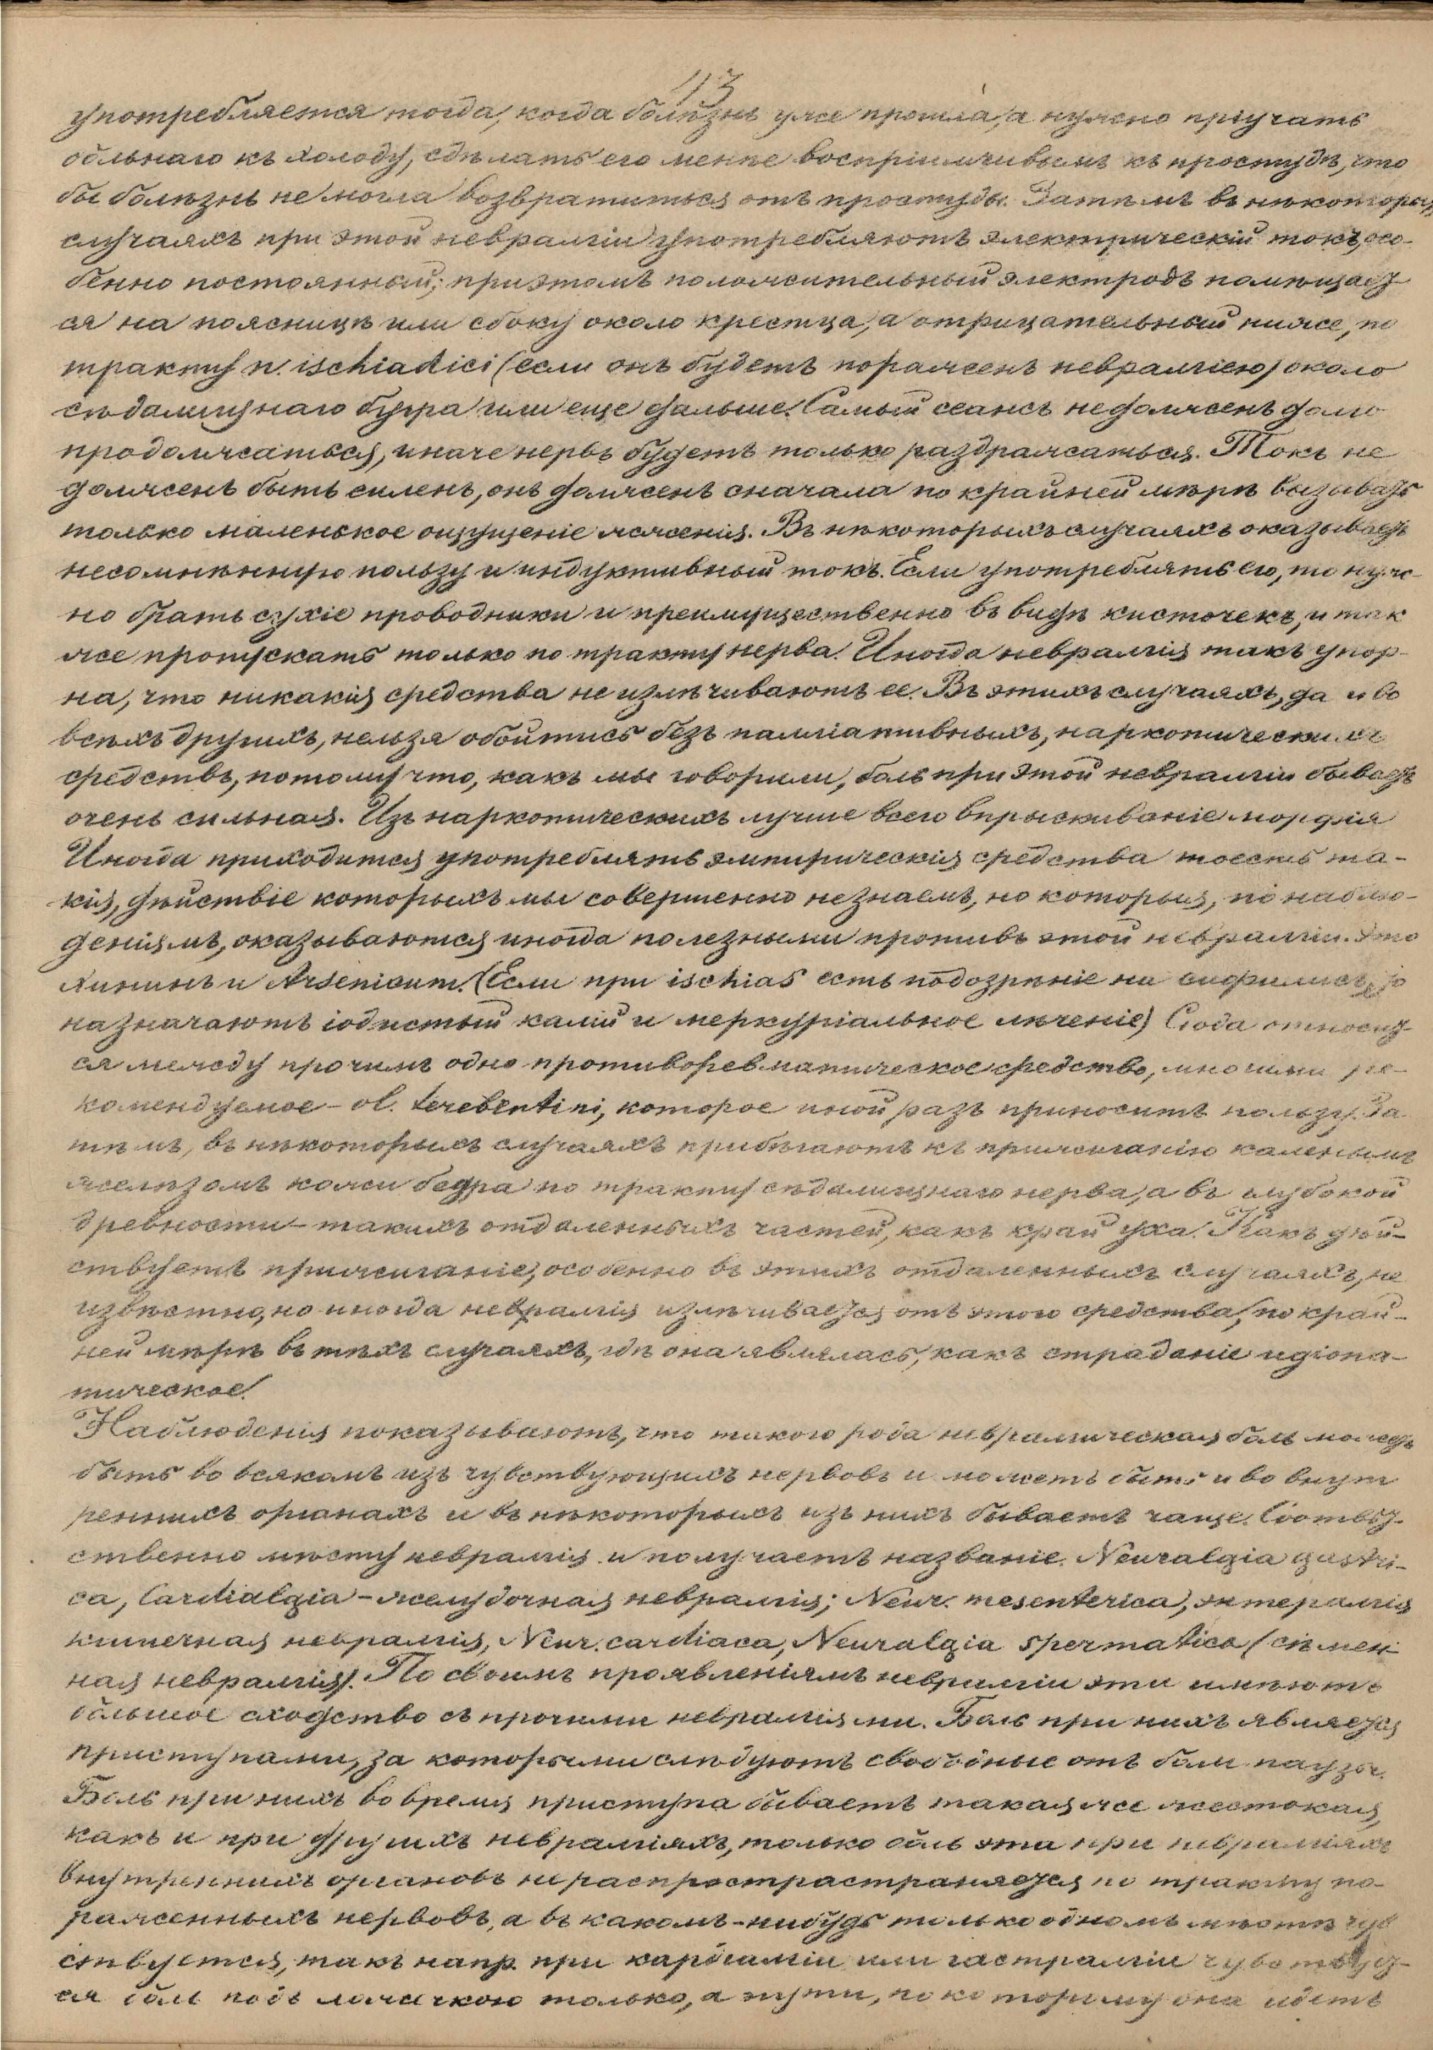 113
употребляется тогда, когда болѣзнь уже прошла, а нужно пріучать
больнаго къ холоду, сдѣлать его менѣе воспріимчивымъ къ простудѣ, что
бы болѣзнь не могла возвратиться отъ простуды. Затѣмъ въ нѣкоторыхъ
случаяхъ при этой невралгіи употребляютъ электрическій токъ, осо-
бенно постоянный; при этомъ положительный электродъ помѣщает-
ся на поясницѣ или сбоку около крестца, а отрицательный ниже, по
тракту n. ischiadici (если онъ будетъ пораженъ невралгіею) около
сѣдалищнаго бугра или еще дальше. Самый сеансъ не долженъ долго
продолжаться, иначе нервъ будетъ только раздражаться. Токъ не
долженъ быть силенъ, онъ долженъ сначала по крайней мѣрѣ вызывать
только маленькое ощущеніе жженія. Въ нѣкоторыхъ случаяхъ оказываетъ
несомнѣнную пользу и индуктивный токъ. Если употреблять его, то нуж-
но брать сухіе проводники и преимущественно въ видѣ кисточекъ, и так
же пропускать только по тракту нерва. Иногда невралгія такъ упор-
на, что никакія средства не излѣчиваютъ ее. Въ этихъ случаяхъ, да и во
всѣхъ другихъ, нельзя обойтись безъ палліативныхъ, наркотическихъ
средствъ, потому что, какъ мы говорили, боль при этой невралгіи бываетъ
очень сильная. Изъ наркотическихъ лучше всего впрыскиваніе морфія
Иногда приходится употреблять эмпирическія средства тоесть та-
кія, дѣйствіе которыхъ мы совершенно незнаемъ, но которыя, по наблю-
деніямъ, оказываются иногда полезными противъ этой невралгіи. Это
хининъ и Arsenicum. (Если при ischias есть подозрѣніе на сифилисъ, то
назначаютъ іодистый калій и меркуріальное лѣченіе) Сюда относит-
ся между прочимъ одно противоревматическое средство, многими ре-
комендуемое - ol. terebentini, которое иной разъ приноситъ пользу. За
тѣмъ, въ нѣкоторыхъ случаяхъ прибѣгаютъ къ прижиганію каленымъ
желѣзомъ кожи бедра по тракту сѣдалищнаго нерва, а въ глубокой
древности - такихъ отдаленныхъ частей, какъ край уха. Какъ дѣй-
ствуетъ прижиганіе, особенно въ этихъ отдаленныхъ случаяхъ, не
извѣстно, но иногда невралгія излѣчивается отъ этого средства, по край-
ней мѣрѣ въ тѣхъ случаяхъ, гдѣ она являлась, какъ страданіе идіопа-
тическое.
Наблюденія показываютъ, что такого рода невралгическая боль можетъ
быть во всякомъ изъ чувствующихъ нервовъ и можетъ быть и во внут
реннихъ органахъ и въ нѣкоторыхъ изъ нихъ бываетъ чаще. Соотвѣт-
ственно мѣсту невралгія и получаетъ названіе. Neuralgia gastri-
ca, Cardialgia - желудочная невралгія; Neur. mesenterica, энтералгія
кишечная невралгія, Neur. cardiaca, Neuralgia spermatica (сѣмен
ная невралгія). По своимъ проявленіямъ невралгіи эти имѣютъ
большое сходство съ прочими невралгіями. Боль при нихъ является
приступами, за которыми слѣдуютъ свободные отъ боли паузы.
Боль при нихъ во время приступа бываетъ такая же жестокая,
какъ и при другихъ невралгіяхъ, только боль эта при невралгіяхъ
внутреннихъ органовъ нераспрострастраняется по тракту по-
раженныхъ нервовъ, а въ какомъ-нибудь только одномъ мѣстѣ чув
ствуется, такъ напр. при кардіалгіи или гастралгіи чувствует-
ся боль подъ ложечкою только, а пути, по которому она идетъ